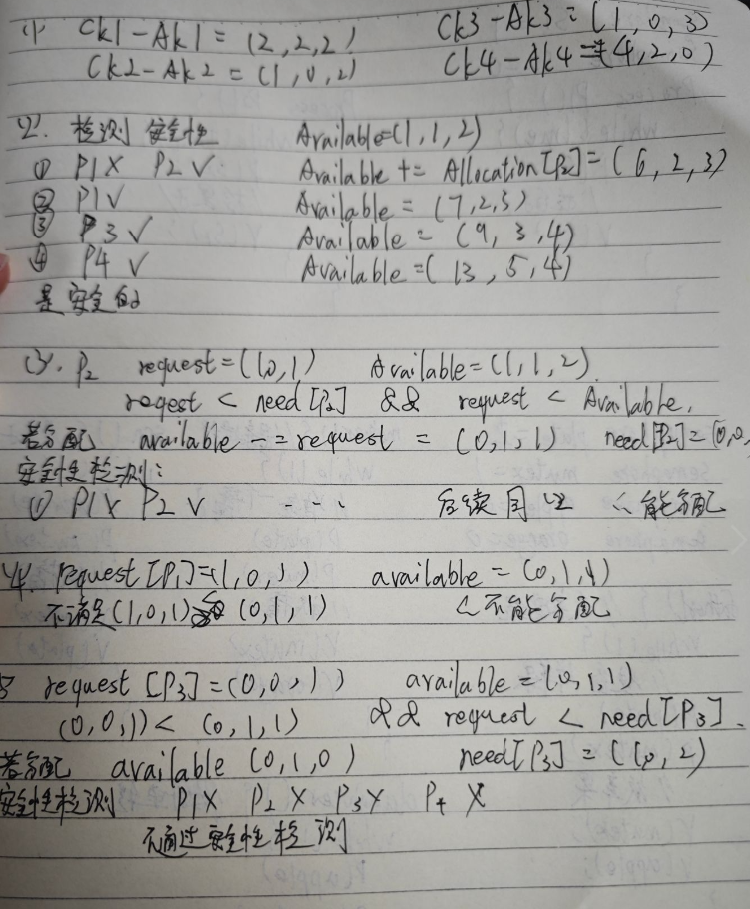 (1) Ck1-Ak1=(2,2,2) Ck3-Ak3=(1,0,3)
Ck2-Ak2=(1,0,2) Ck4-Ak4=(4,2,0)
(2). 检测安全性 Available=(1,1,2)
① P1× P2√ Available += Allocation[P2]=(6,2,3)
② P1√ Available=(7,2,3)
③ P3√ Available=(9,3,4)
④ P4√ Available=(13,5,4)
是安全的
(3). P2 request=(1,0,1) Available=(1,1,2)
reqest < need[P2] && request < Available,
若分配 available -= request = (0,1,1) need[P2]=(0,0,
安全性检测:
① P1× P2√ ... 后续同 (2) ∴能分配
(4. request[P1]=(1,0,1) available=(0,1,1)
不满足(1,0,1) (0,1,1) ∴不能分配
5 request[P3]=(0,0,1) available=(0,1,1)
(0,0,1)<(0,1,1) && request < need[P3].
若分配 available (0,1,0) need[P3]=(1,0,2)
安全性检测 P1× P2× P3× P4×
不通过安全性检测